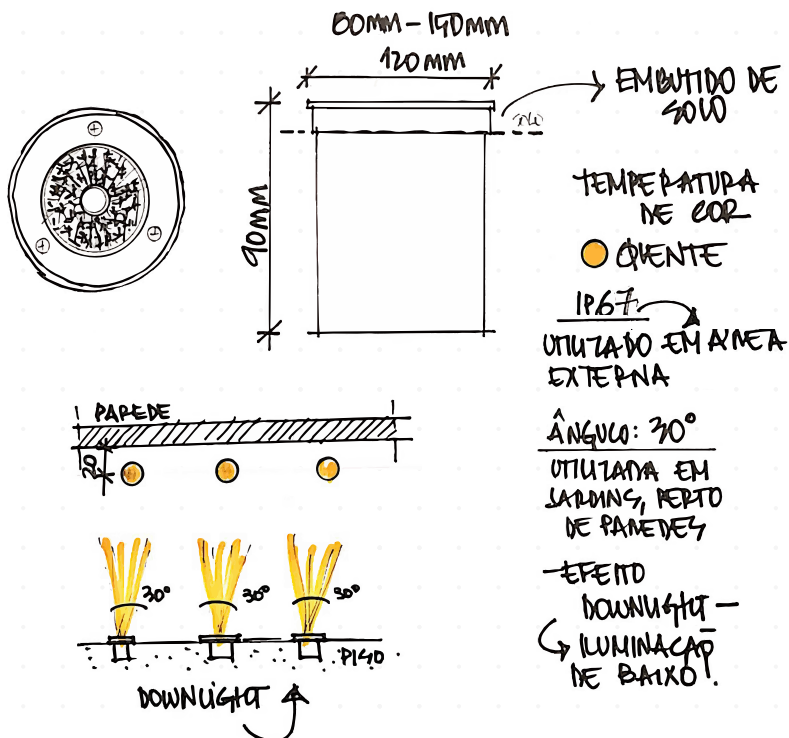 60MM - 140MM
120MM
90MM
EMBUTIDO DE
SOLO
TEMPERATURA
DE COR
QUENTE
IP67
UTILIZADO EM ÁREA
EXTERNA
PAREDE
20
ÂNGULO: 30°
UTILIZADA EM
JARDINS, PERTO
DE PAREDES
30°
30°
30°
PISO
DOWNLIGHT
-EFEITO
DOWNLIGHT -
ILUMINAÇÃO
DE BAIXO!